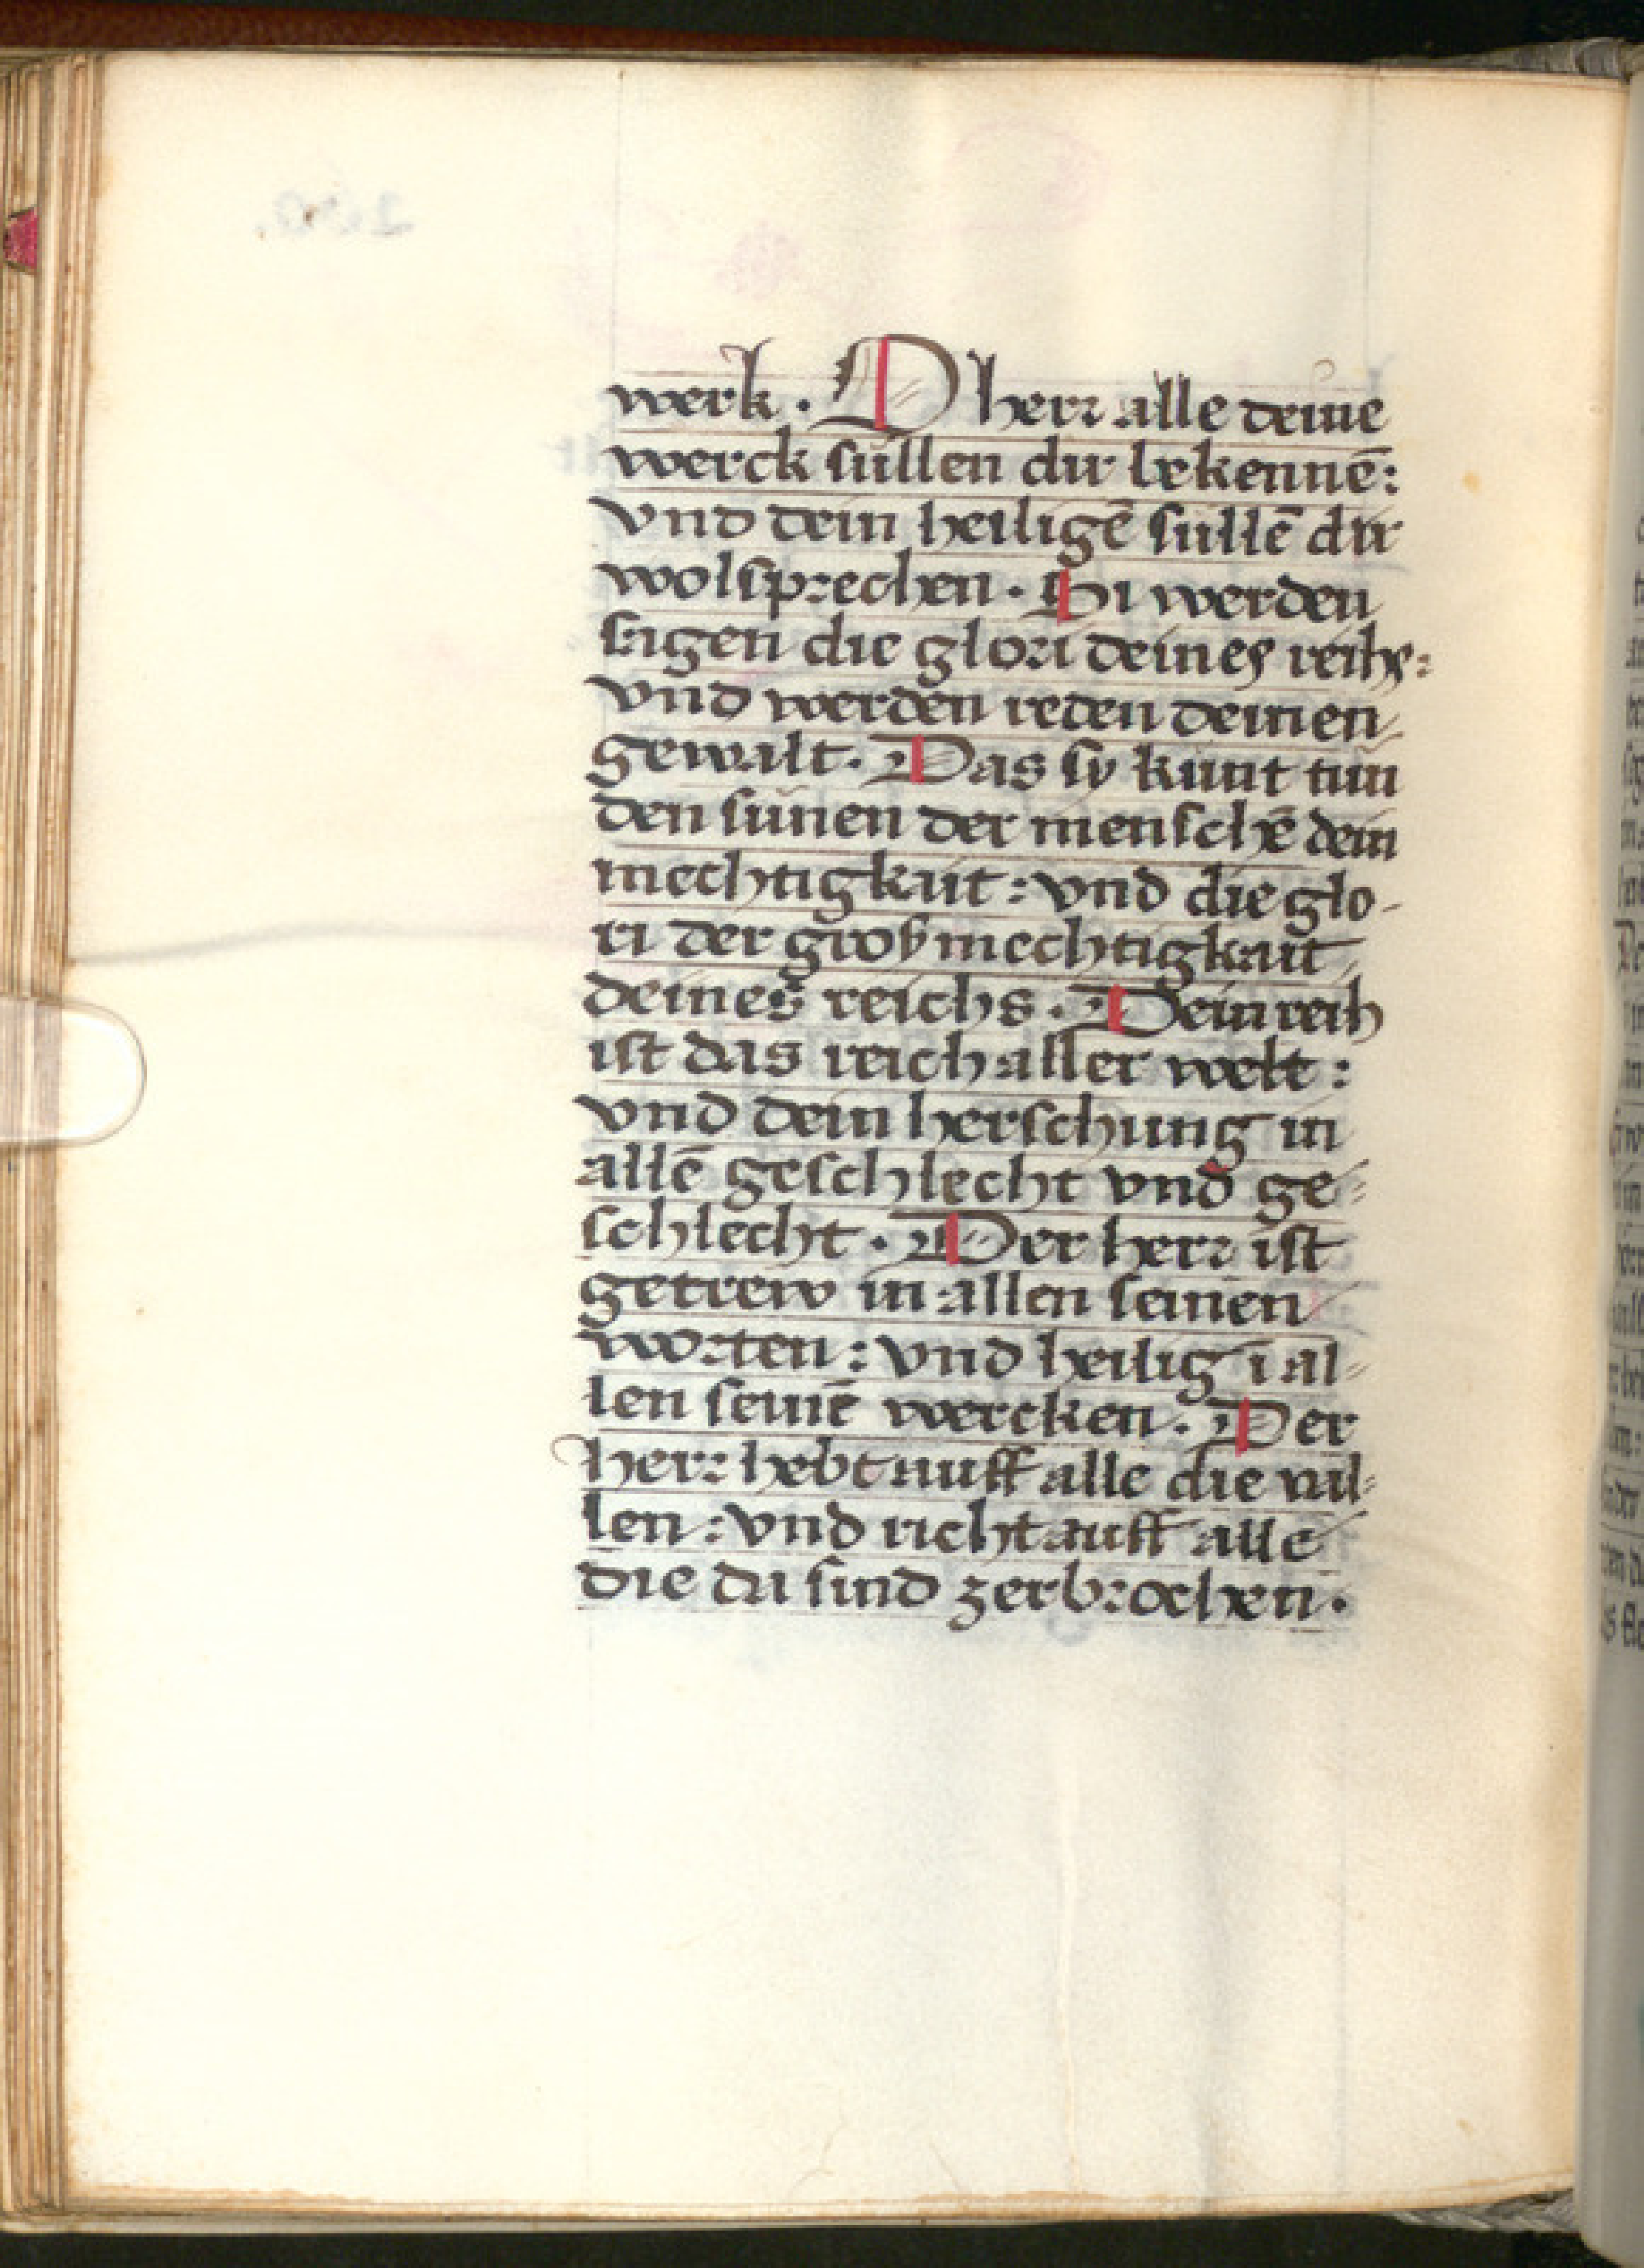 werk. O herr alle deine
werck süllen dir bekennē:
vnd dein heiligē süllē dir
wolsprechen. Si werden
sagen die glori deines reihs:
vnd werden reden deinen
gewalt. Das sy kunt tun
den sünen der menschē dein
mechtigkait: vnd die glo-
ri der groß mechtigkait
deines reichs. Dein reih
ist das reich aller welt:
vnd dein herschung in
allē geschlecht vnd ge-
schlecht. Der herr ist
getrew in allen seinen
worten: vnd heilig ī al-
len seinē wercken. Der
herr hebt auff alle die val-
len: vnd richt auff alle
die da sind zerbrochen.